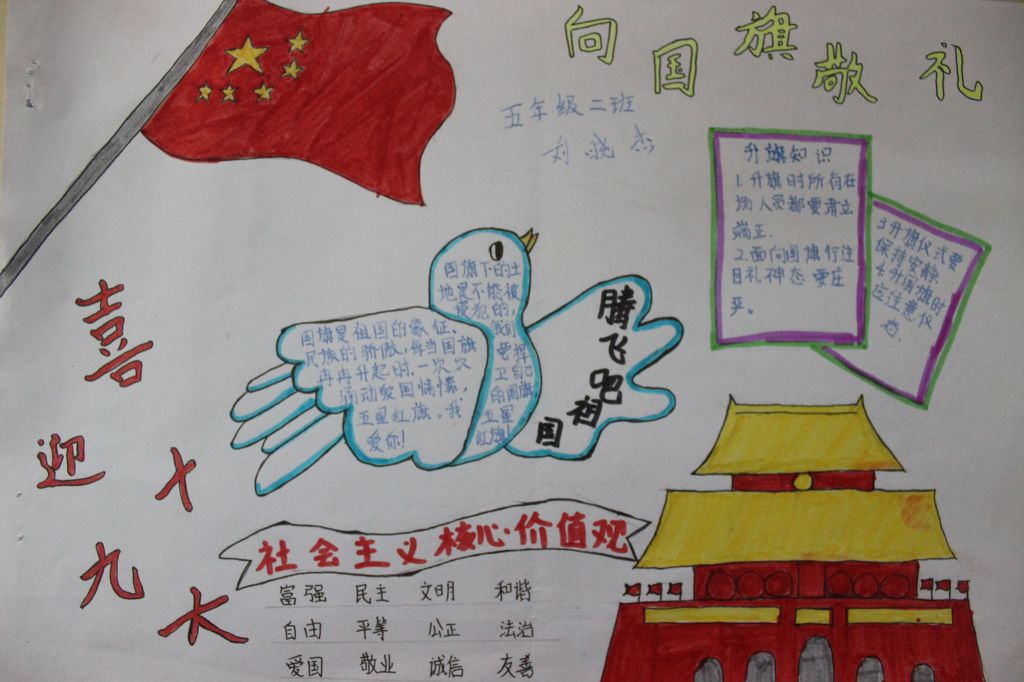 向国旗敬礼
五年级二班
刘晓杰
升旗知识
1.升旗时所有在
场人员都要肃立
端正.
2.面向国旗行注
目礼神态要庄
严。
3升旗仪式要
保持安静.
4.升国旗时
应注意仪
态.
国旗下的土
地是不能被
侵犯的,
我们
要捍
卫自己
的国旗,
五星
红旗!
国旗是祖国的象征、
民族的骄傲,每当国旗
冉冉升起时.一次次
涌动爱国情愫,
五星红旗,我
爱你!
腾飞吧祖国
喜迎十九大
社会主义核心价值观
富强 民主 文明 和谐
自由 平等 公正 法治
爱国 敬业 诚信 友善